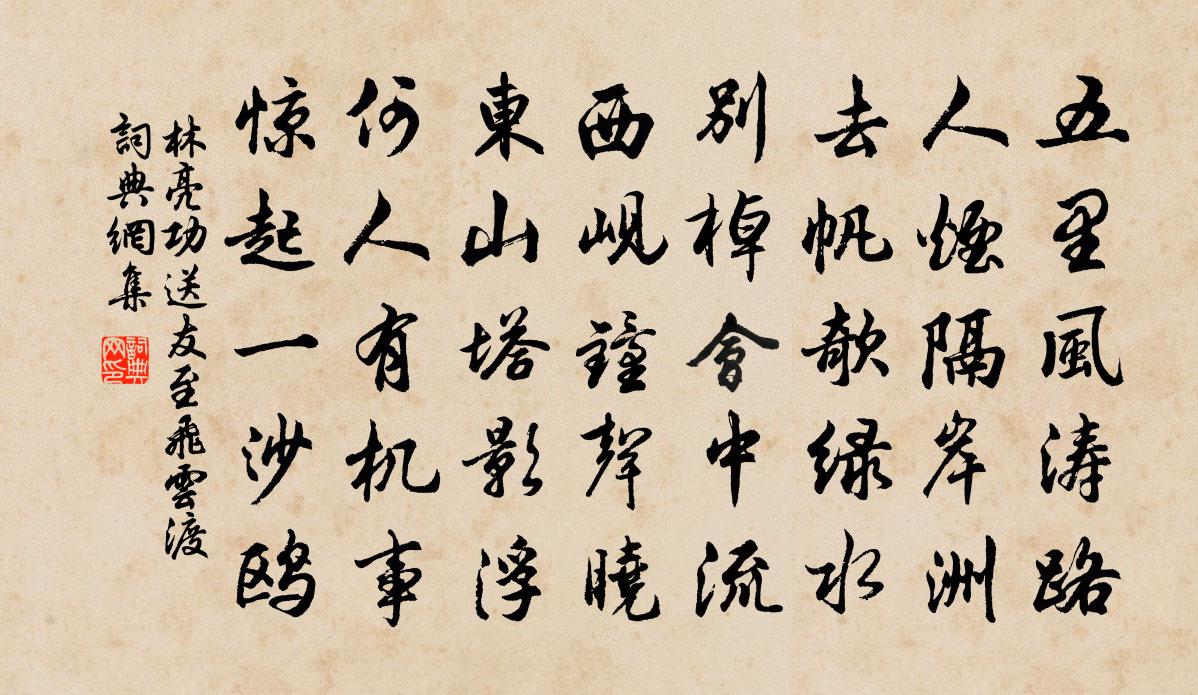 五里風濤路
人煙隔岸洲
去帆欹绿水
別棹會中流
西峴鐘聲曉
東山塔影浮
何人有机事
惊起一沙鸥
林亮功送友至飛雲渡
詞典網集
詞典网印